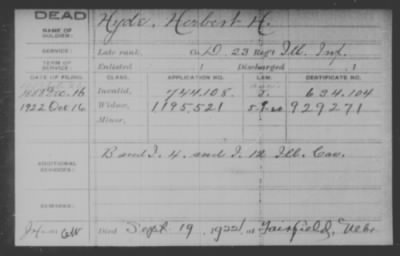 DEAD
NAME OF SOLDIER: Hyde, Herbert H.
SERVICE: Late rank, Co. D. 23 Reg't Ill. Inf.
TERM OF SERVICE: Enlisted 1 Discharged 1
DATE OF FILING. CLASS. APPLICATION NO. LAW. CERTIFICATE NO.
Invalid, 744.108. 634.104
1922 Oct 16 Widow, 1195.521 929271
Minor,
ADDITIONAL SERVICES: B and I. 4. and I. 12 Ill. Cav.
REMARKS:
Died Sept 19, 1922, at Fairfield, Nebr